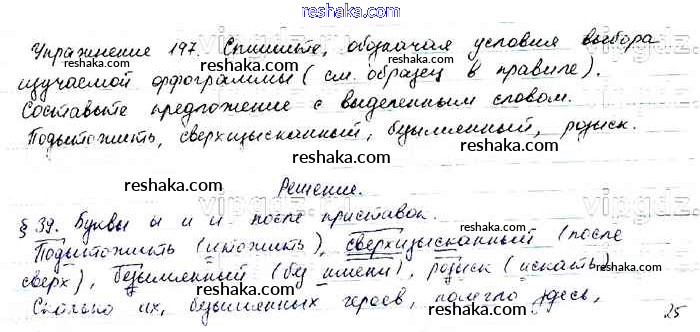 reshaka.com
Упражнение 197. Спишите, обозначая условия выбора
изучаемой орфограммы (см. образец в правиле).
Составьте предложение с выделенным словом.
Подытожить, сверхизысканный, безымянный, розыск.
reshaka.com
reshaka.com
reshaka.com
Решение.
§ 39. Буквы ы и и после приставок.
reshaka.com
Подытожить (итожить), сверхизысканный (после
сверх), безымянный (без имени), розыск (искать)
reshaka.com
Сколько их, безымянных героев, полегло здесь,
25
reshaka.com